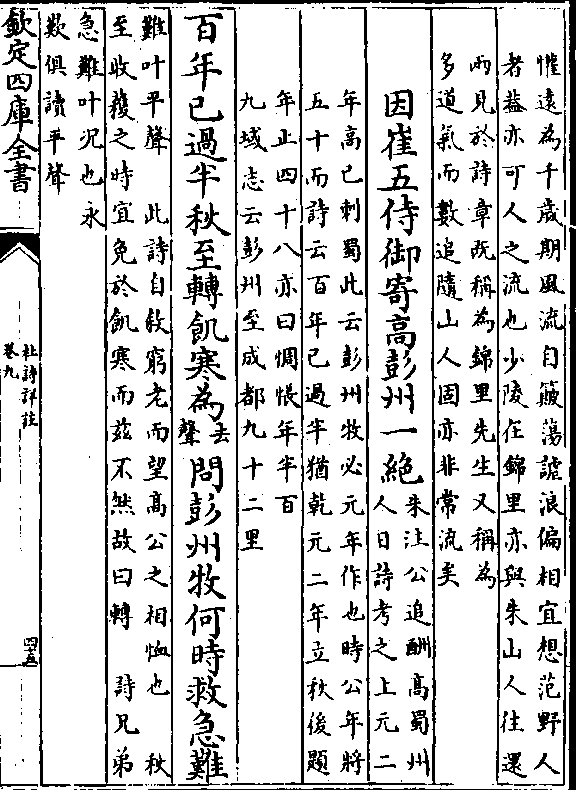 懽遠為千歲期風流自簸蕩謔浪偏相宜想范野人
者蓋亦可人之流也少陵在錦里亦與朱山人往還
兩見於詩章既稱為錦里先生又稱為
多道氣而數追隨山人固亦非常流矣
因崔五侍御寄高彭州一絕
朱注公追酬高蜀州
人日詩考之上元二
年高已刺蜀此云彭州牧必元年作也時公年將
五十而詩云百年已過半猶乾元二年立秋後題
年正四十八亦曰惆悵年半百
九域志云彭州至成都九十二里
百年已過半秋至轉飢寒為去聲問彭州牧何時救急難
難叶平聲 此詩自敘窮老而望高公之相恤也 秋
至收穫之時宜免於飢寒而兹不然故曰轉 詩兄弟
急難叶况也永
歎俱讀平聲
欽定四庫全書
杜詩詳註
卷九
四五